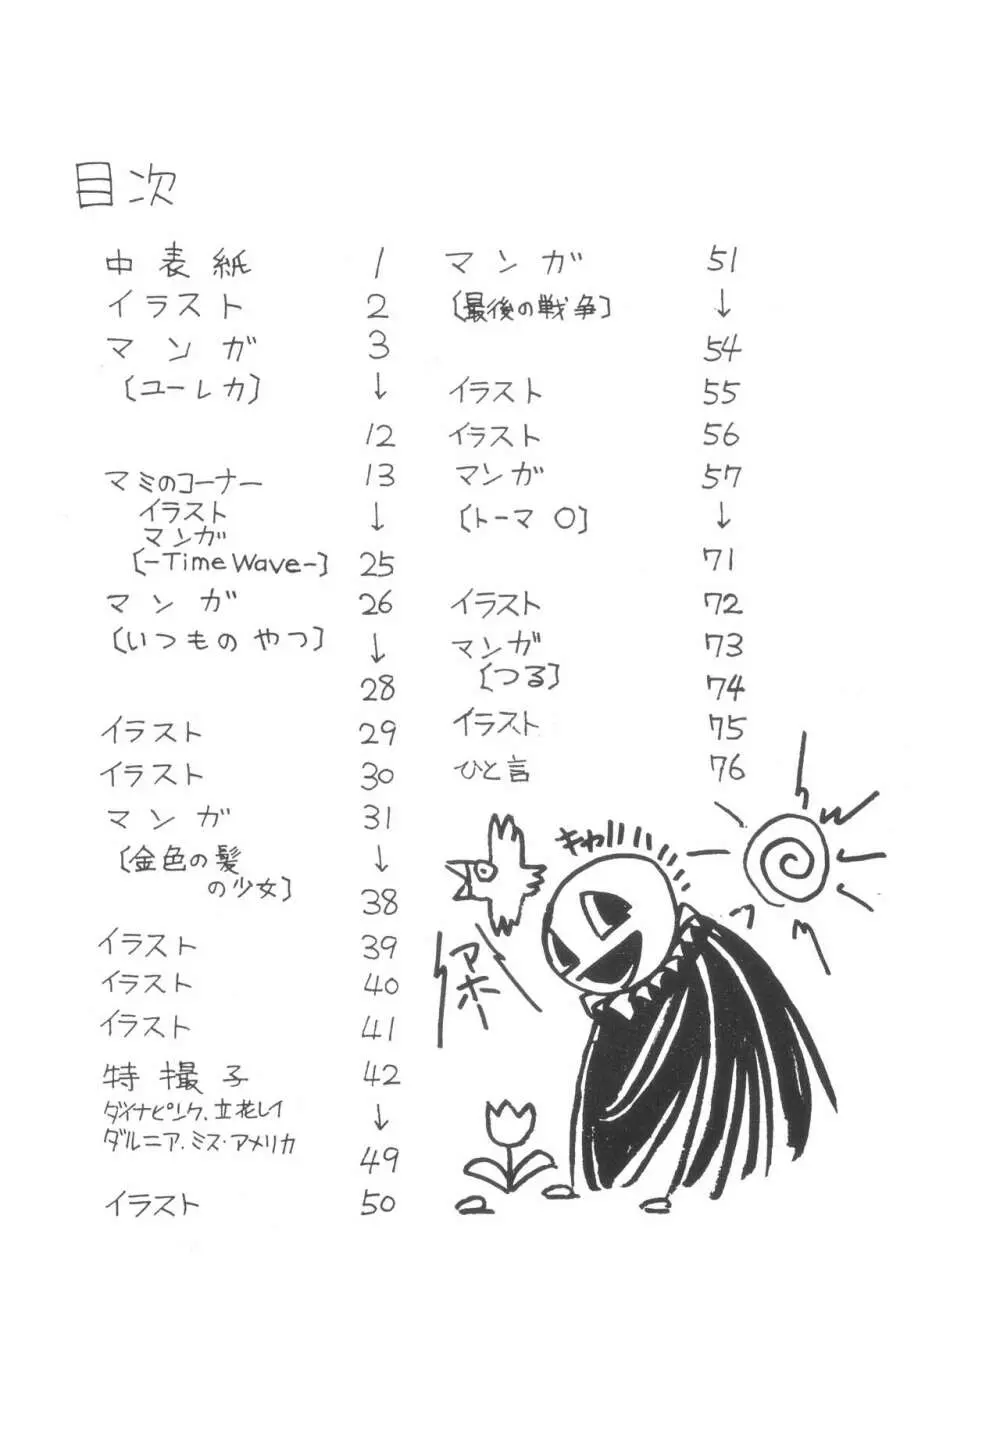 目次
中表紙 1
イラスト 2
マンガ 3
〔ユーレカ〕 ↓
12
マミのコーナー 13
イラスト ↓
マンガ
〔-Time Wave-〕 25
マンガ 26
〔いつものやつ〕 ↓
28
イラスト 29
イラスト 30
マンガ 31
〔金色の髪 ↓
の少女〕 38
イラスト 39
イラスト 40
イラスト 41
特撮子 42
ダイナピンク.立花レイ ↓
ダルニア.ミス・アメリカ 49
イラスト 50
マンガ 51
〔最後の戦争〕 ↓
54
イラスト 55
イラスト 56
マンガ 57
〔トーマ O〕 ↓
71
イラスト 72
マンガ 73
〔つる〕 74
イラスト 75
ひと言 76
キャハハハ
アホー